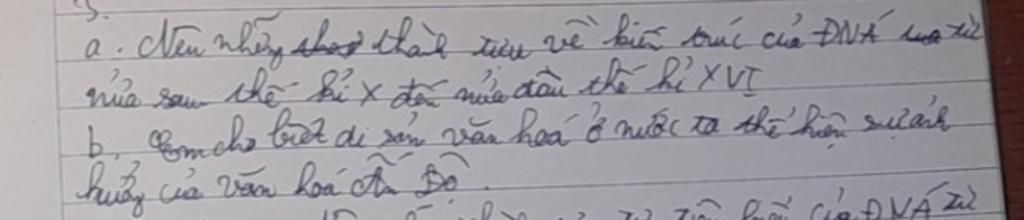 a. Nêu những thành tựu về kiến trúc của ĐNÁ từ
nửa sau thế kỉ X đến nửa đầu thế kỉ XVI
b, Em cho biết di sản văn hoá ở nước ta thể hiện sự ảnh
hưởng của văn hoá Ấn Độ.
của ĐNÁ từ